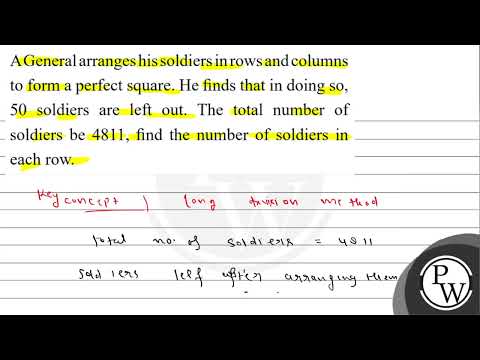 A General arranges his soldiers in rows and columns
to form a perfect square. He finds that in doing so,
50 soldiers are left out. The total number of
soldiers be 4811, find the number of soldiers in
each row.
Key concept | long division method
total no. of soldiers = 4811
soldiers left after arranging them
P
W